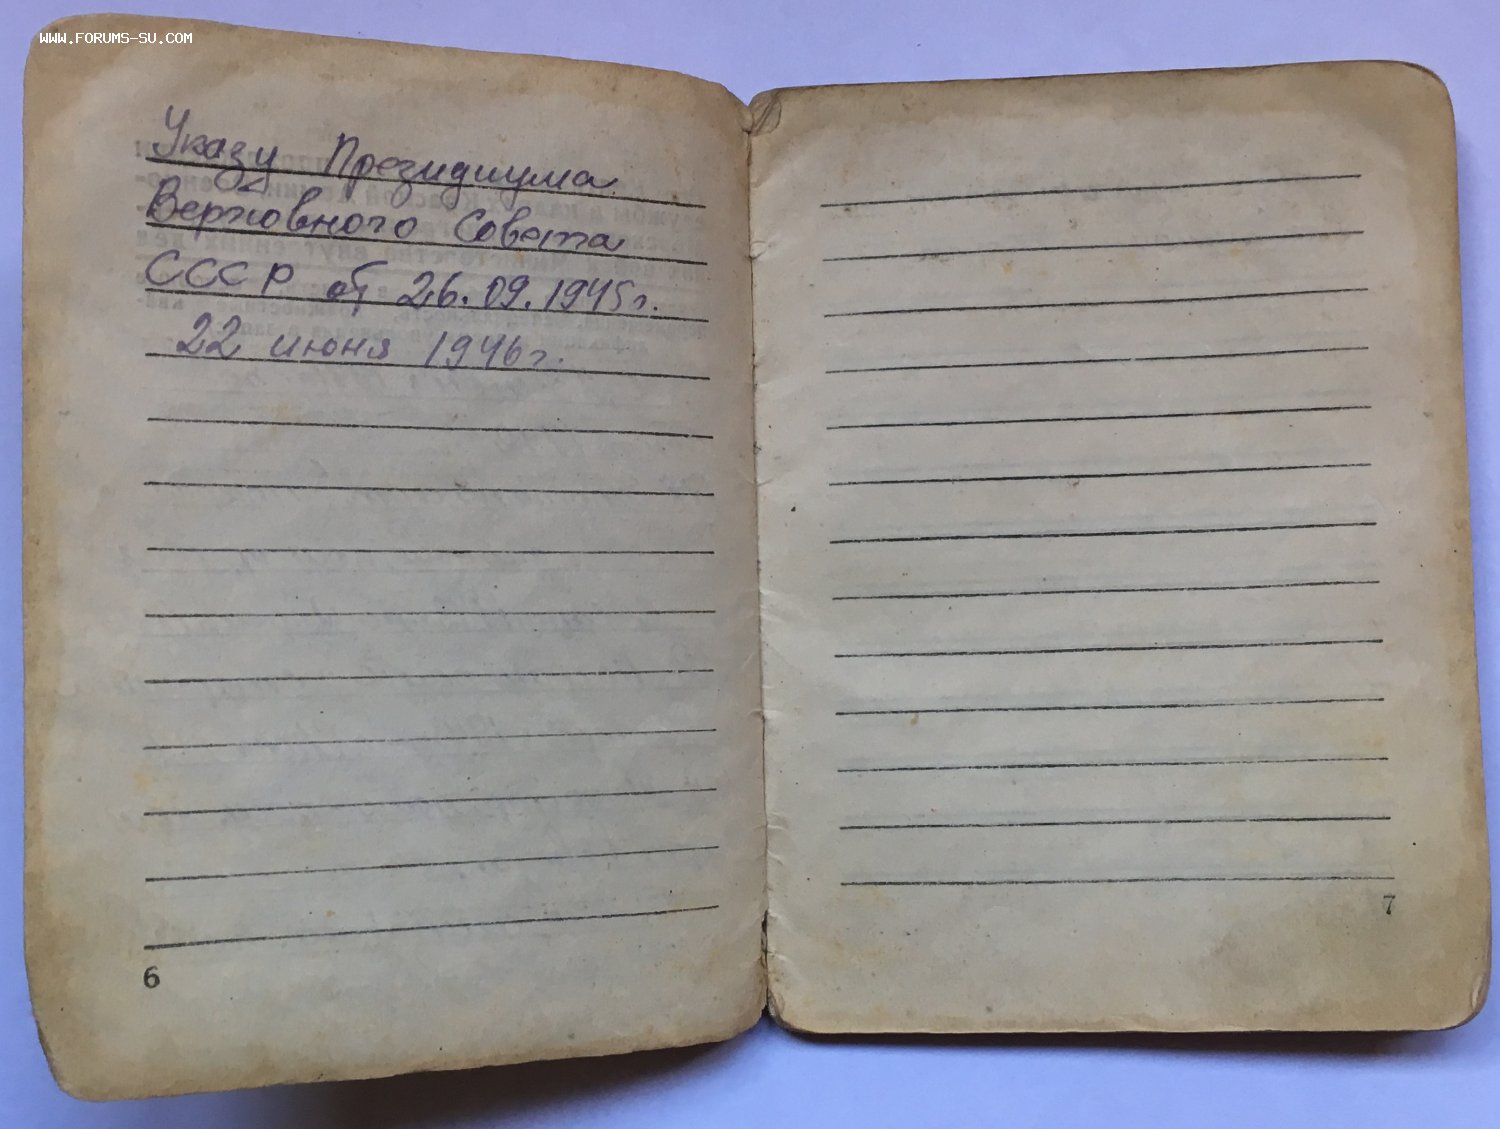 WWW.FORUMS-SU.COM
Указу Президиума
Верховного Совета
СССР от 26.09.1945г.
22 июня 1946г.
6
7